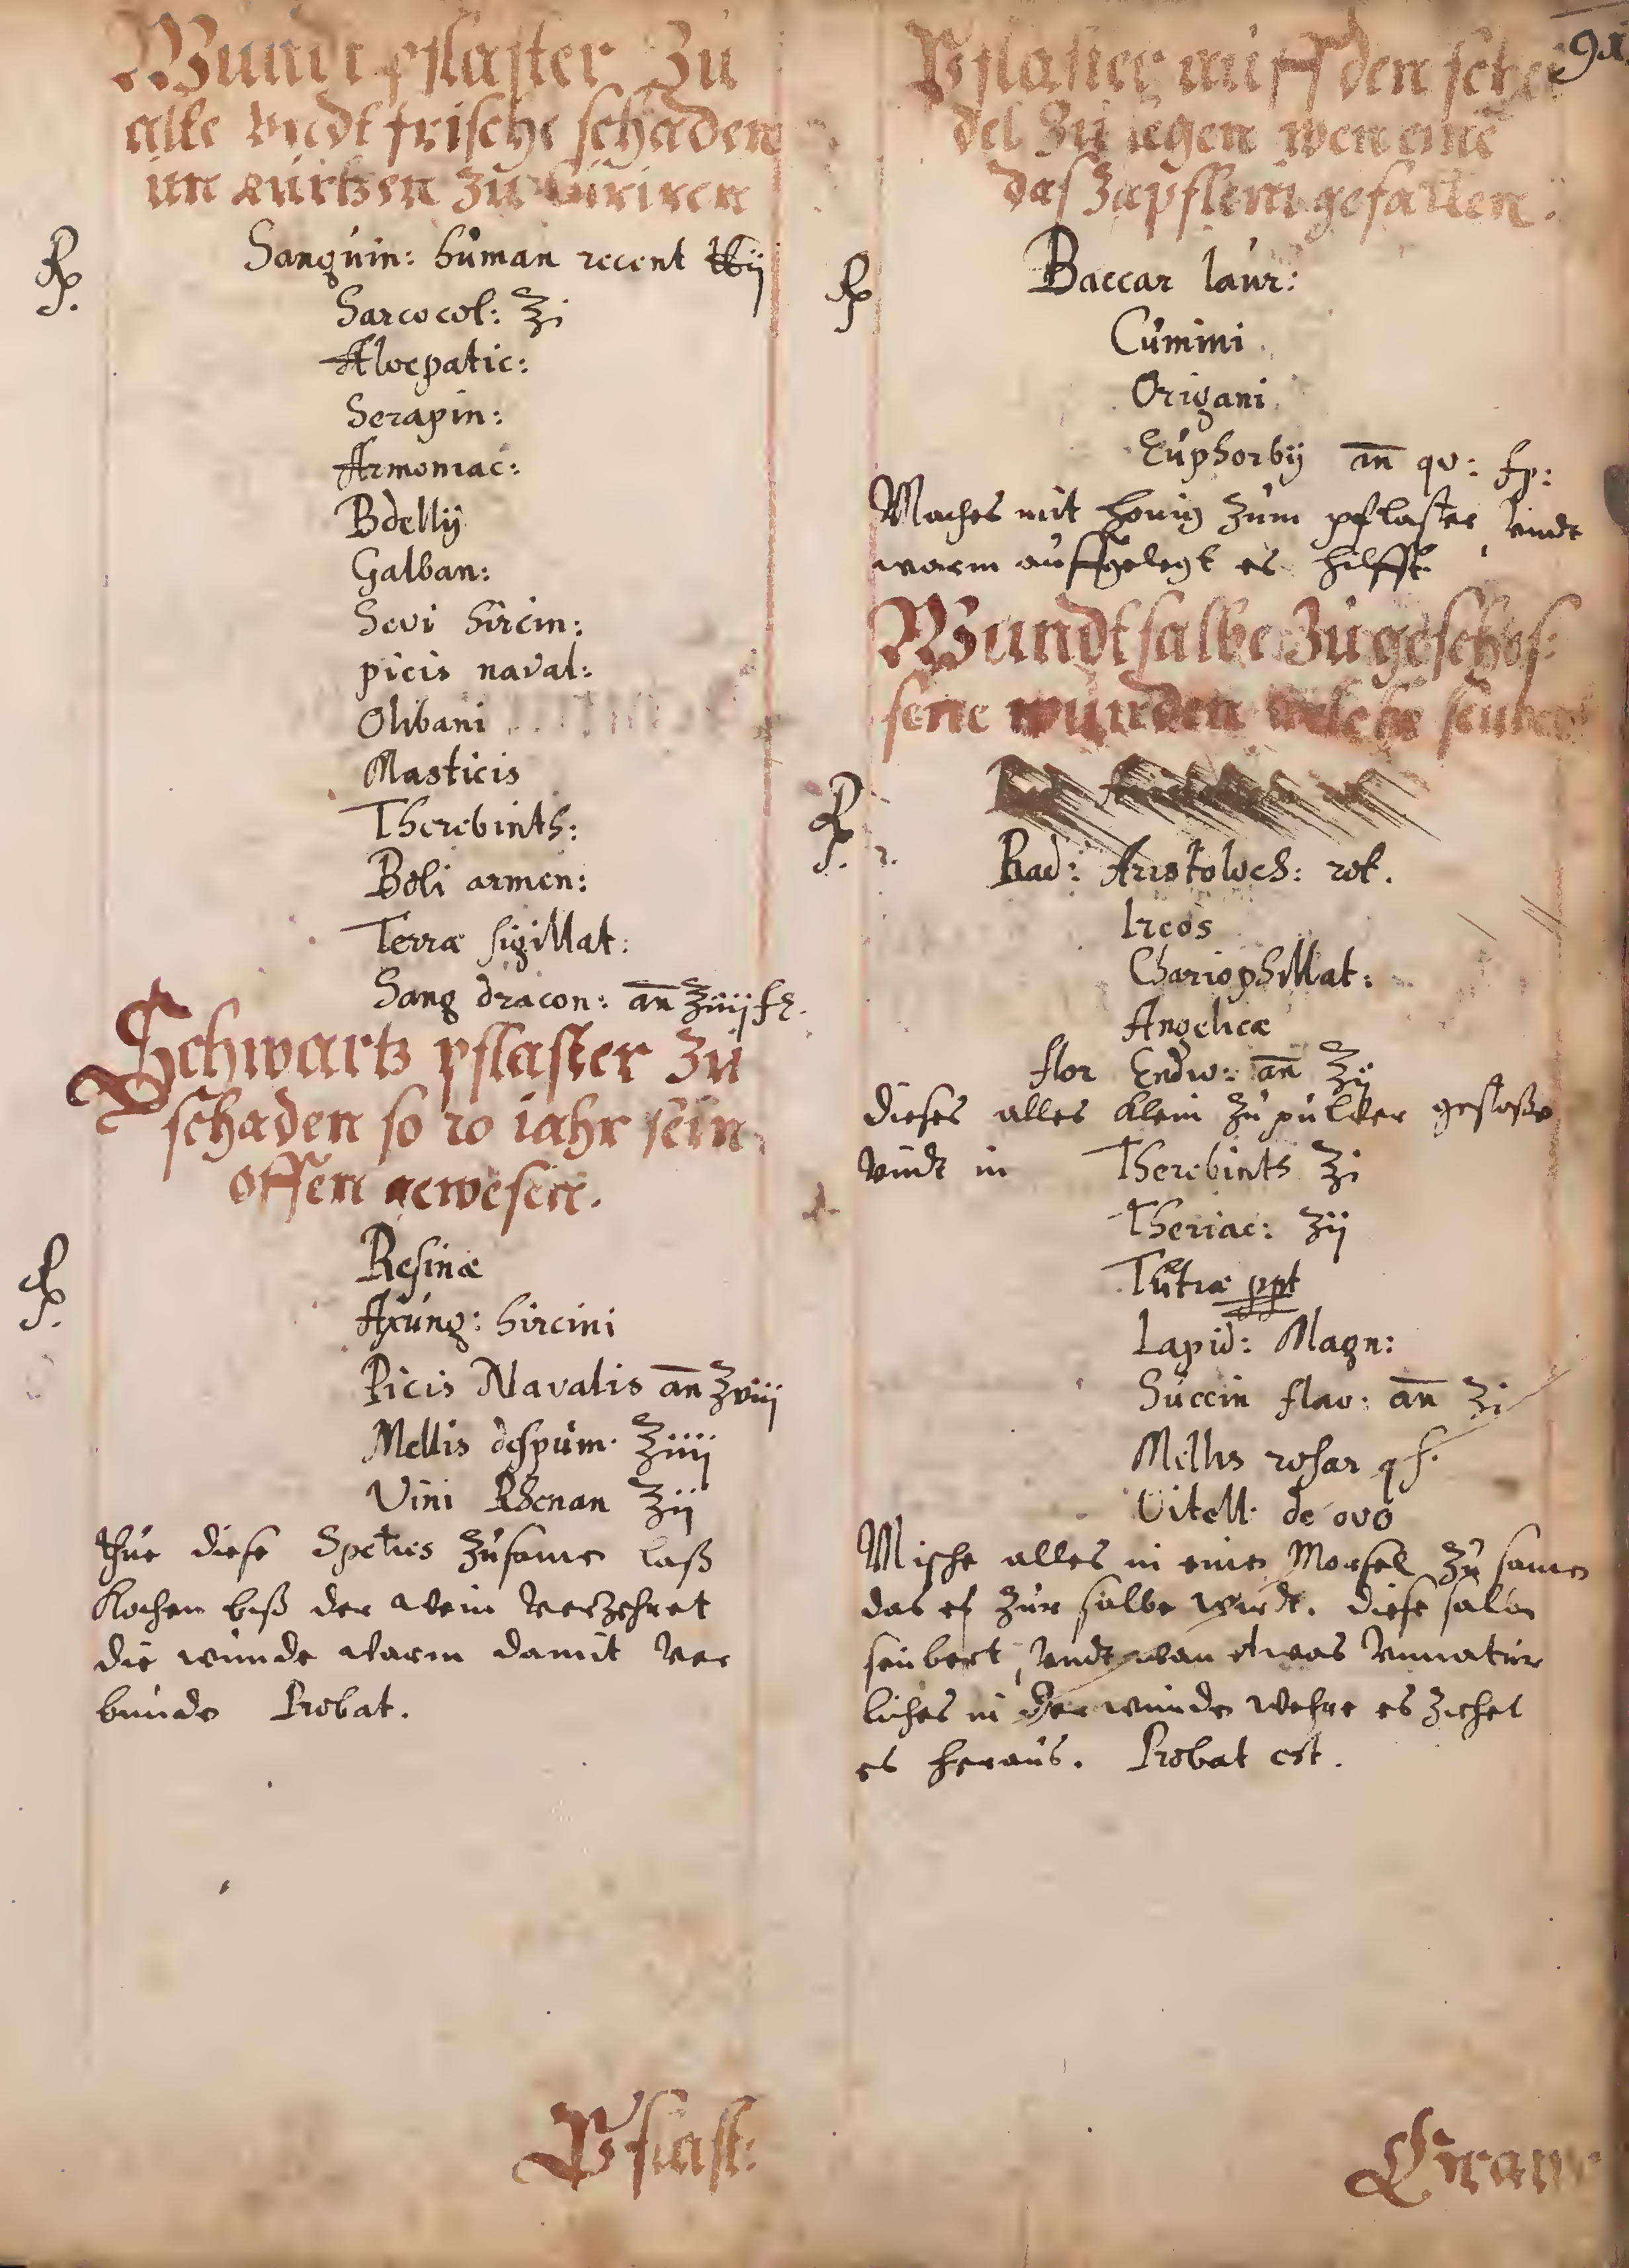 Wundt pflaster Zu
alte vndt frische schaden
in kurtzen zu Curiren
Rp. Sanguin: human recent ℔ij
Sarcocol: ʒi
Aloepatic:
Serapin:
Armoniac:
Bdellij
Galban:
Sevi hircin:
picis naval:
Olibani
Masticis
Therebinth:
Boli armen:
Terræ sigillat:
Sang dracon: an̄ ʒiiij
Schwartz pflaster Zu
schaden so 20 iahr sein
offen gewesen.
Rp. Resinæ
Axung: hircini
Picis Navalis an̄ ʒviij
Mellis despum. ʒiiij
Vini Rhenan ʒij
thue diese Species zusame laß
kochen biß der wein verzehret
die wunde warm damit ver
bunde Probat.
Pflast:
91
Pflaster auff den sche
del zu legen wen eine
das Zapflein gefallen.
Rp Baccar laur:
Cumini
Origani
Euphorbij an̄ qv:
Maches mit honig zum pflaster vndt
warm auffgelegt es hilfft.
Wundtsalbe Zu geschos:
sene wunden welche seubert
Rp. Rad: Aristoloch: rot.
Ireos
Chariophillat:
Angelicæ
flor Endiv: an̄ ʒij
dieses alles klein zu pulver gestoße
vndt in Therebinth ʒi
Theriac: ʒij
Tutiæ ppt
Lapid: Magn:
Succin flav: an̄ ʒi
Mellis rosar q s.
Vitell. de ovo
Mische alles in eine Morsel zu same
das es zur salbe wirdt. diese salbe
seubert, vndt wan etwas vnnatur
liches in der wunde wehre es ziehet
es heraus. Probat est.